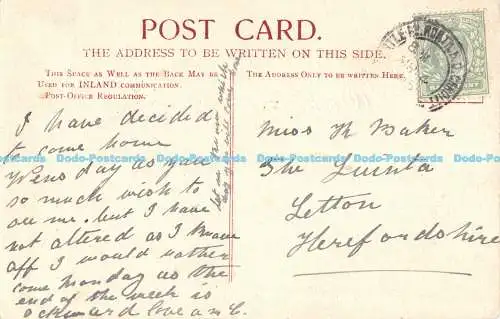 POST CARD.
THE ADDRESS TO BE WRITTEN ON THIS SIDE.
THIS SPACE AS WELL AS THE BACK MAY BE
USED FOR INLAND COMMUNICATION.
POST-OFFICE REGULATION.
THE ADDRESS ONLY TO BE WRITTEN HERE.
I have decided
to come home
Wensday as you
so much wish to
see me. but I have
not altered as I
off I would rather
come Monday as the
end of the week is
ackward love a
let me know
Miss M Baker
The
Letton
Herefordshire
Dodo-Postcards Dodo-Postcards Dodo-Postcards Dodo-Postcards Dodo-Postcards Dodo-Postcards